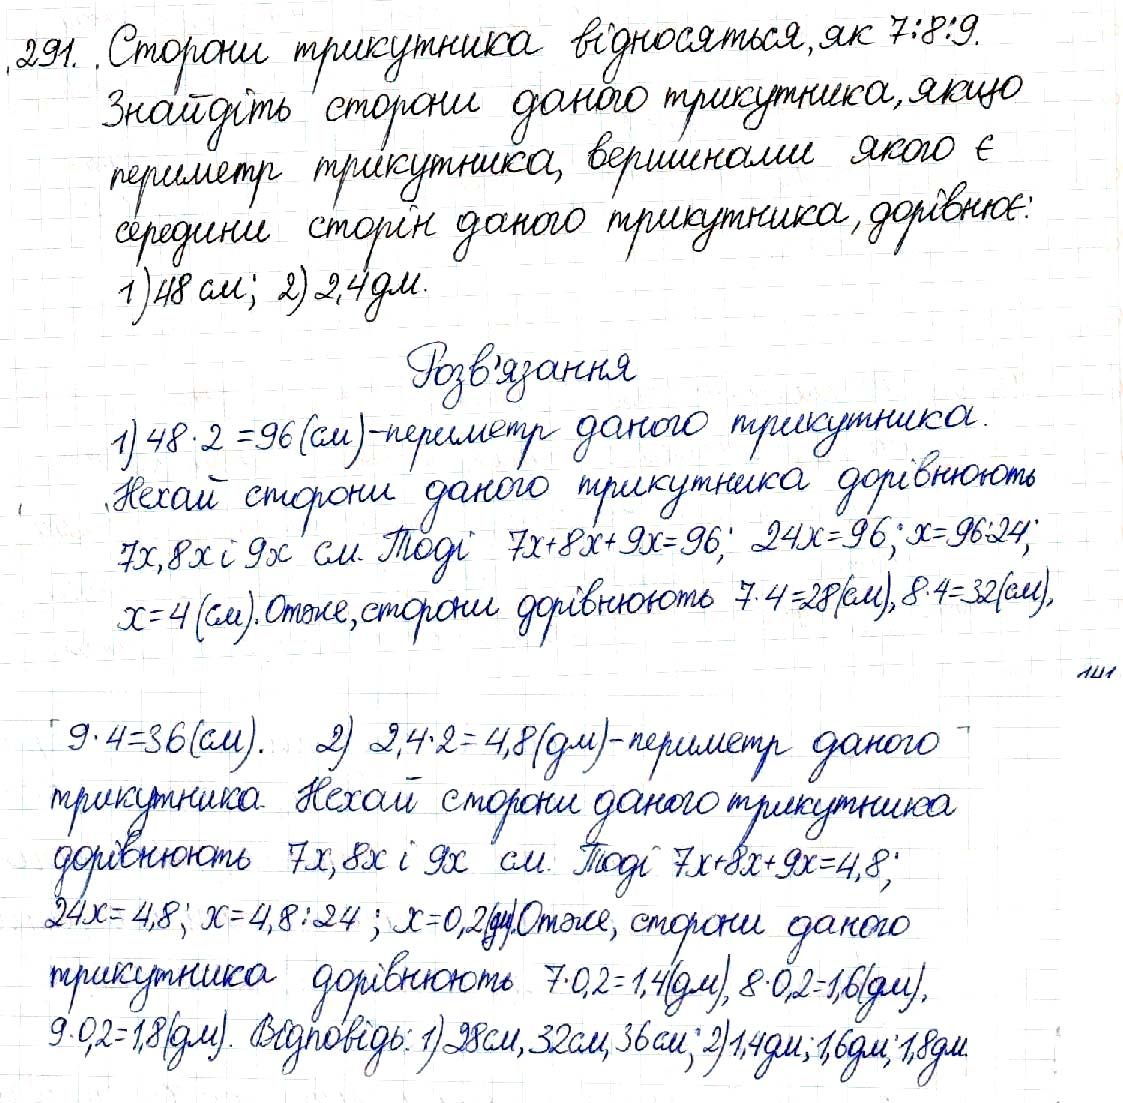 291. Сторони трикутника відносяться, як 7:8:9.
Знайдіть сторони даного трикутника, якщо
периметр трикутника, вершинами якого є
середини сторін даного трикутника, дорівнює:
1) 48 см; 2) 2,4 дм.
Розв'язання
1) 48·2=96(см)-периметр даного трикутника.
Нехай сторони даного трикутника дорівнюють
7x, 8x і 9x см. Тоді 7x+8x+9x=96; 24x=96; x=96:24;
x=4(см). Отже, сторони дорівнюють 7·4=28(см), 8·4=32(см),
141
9·4=36(см). 2) 2,4·2=4,8(дм)-периметр даного
трикутника. Нехай сторони даного трикутника
дорівнюють 7x, 8x і 9x см. Тоді 7x+8x+9x=4,8;
24x=4,8; x=4,8:24; x=0,2(дм). Отже, сторони даного
трикутника дорівнюють 7·0,2=1,4(дм), 8·0,2=1,6(дм),
9·0,2=1,8(дм). Відповідь: 1) 28см, 32см, 36см; 2) 1,4дм; 1,6дм; 1,8дм.